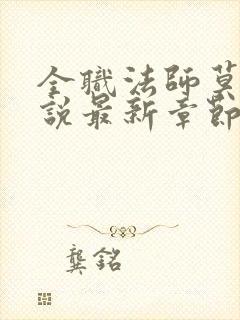 全職法師莫
說最新章節
龔銘